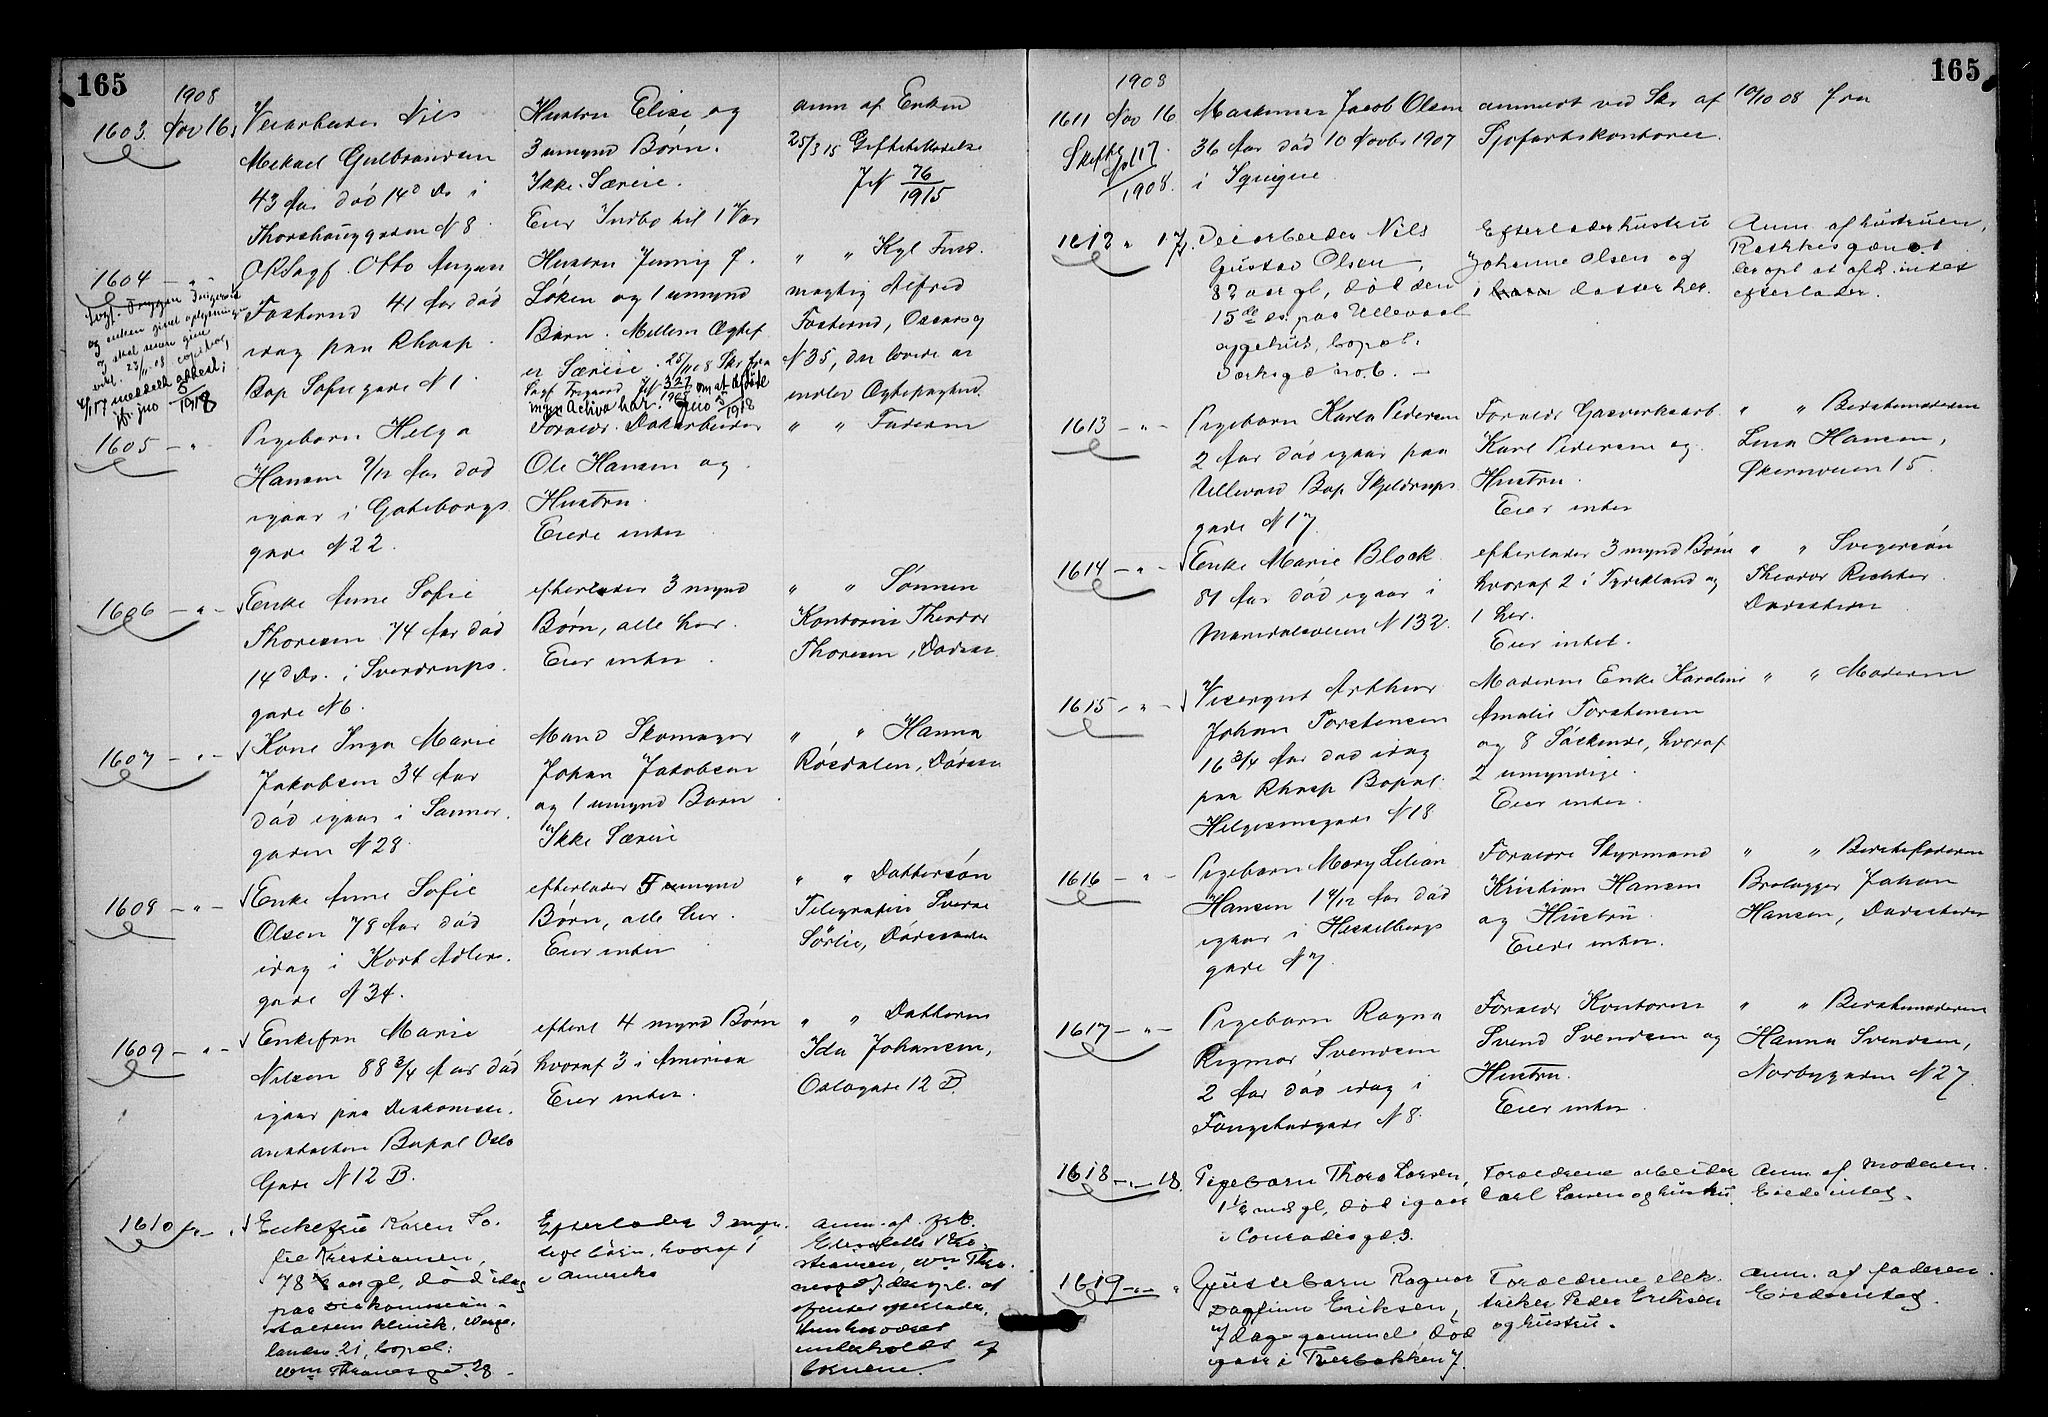 165
1908
1603. Nov 16. Veiarbeider Nils
Mikael Gulbrandsen
43 Aar død 14d Ds i
Thorshauggaden N 8.
Hustru Elise og
3 umynd Børn.
Ikke Særeie.
Eier Indbo til 1 Vær
anm af Enken
25/3 15 Skifteutlodelse
JN 76/1915
1604 — " ORSagf. Otto August
Fosterud 41 Aar død
idag paa Rhosp.
Bop Sofiegade N 1.
Hustru Jenny f.
Løken og 1 umynd
Barn. Mellem Ægtef
er Særeie. 25/11 08 Skr fra
Sagf
ingen Activa har. Jno 5/1918
" " Kgl Fuld
mægtig Alfred
Fosterud, Oscarsg
N 35, der lovede at
indlev Ægtepagten.
meddelt attest;
jfr jno 5/1918
1605 — " Pigebarn Helga
Hansen 9/12 Aar død
igaar i Gøteborgs
gade N 22.
Forældr. Dokarbeider
Ole Hansen og
Hustru.
Eiede intet
" " Faderen
1606 — " — Enke Anne Sofie
Thoresen 74 Aar død
14d Ds. i Sverdrups
gade N 6.
efterlader 3 mynd
Børn, alle her.
Eier intet.
" " Sønnen
Kontorist Theodor
Thoresen, Dødsst.
1607 — " — Kone Inga Marie
Jakobsen 34 Aar
død igaar i Sanner
gaden N 28.
Mand Skomager
Johan Jakobsen
og 1 umynd Barn.
Ikke Særeie
" " Hanna
Røsdalen, Dødsst
1608 — " — Enke Anne Sofie
Olsen 78 Aar død
idag i Kort Adlers
gade N 34.
efterlader 5 mynd
Børn, alle her.
Eier intet
" " Dattersøn
Telegrafist Sverre
Sørlie, Dødsstedet
1609 — " — Enkefru Marie
Nilsen 88 3/4 Aar død
igaar paa Diakonisse
anstalten Bopæl Oslo
Gade N 12 B.
efterl 4 mynd Børn
hvoraf 3 i Amerika
Eier intet.
" " Datteren
Ida Johansen,
Oslogade 12 B.
1610 Enkefru Karen So
fie Kristiansen,
78 aar gl, død idag
paa Diakonissean-
staltens klinik,
landsv. 21, bopæl:
Wm Thranesgd. 28.
Efterlader 3 myn.
dige børn, hvoraf 1
i Amerika
anm. af frk.
Elisabeth Kri-
stiansen, Wm Thra
nesgd desgl. at
afdøde efterlader.
Hun har været
underholdt af
børnene.
165
1908
1611 Nov 16
Skifte
1908.
Maskinist Jacob Olsen
36 Aar død 10 Novbr 1907
i Iquique
anmeldt ved Skr af
Sjøfartskontoret.
10/10 08 fra
1612 " 17. Veiarbeider Nils
Gustav Olsen,
82 aar gl, død den
15de ds. paa Ullevaal
sygehus, bopæl:
Verksgd no. 6. —
Efterlader hustru
Johanne Olsen og
1 datter her.
Anm. af hustruen,
der opl. at afd. intet
efterlader.
1613 — " — Pigebarn Karla Pedersen
2 Aar død igaar paa
Ullevaal Bop Skjeldrups
gade N 17.
Forældr Gasverksarb.
Karl Pedersen og
Hustru.
Eier intet
" " Bestemoderen
Lena Hansen,
Økernveien 15.
1614 — " — Enke Marie Block
81 Aar død igaar i
Maridalsveien N 132.
efterlader 3 mynd Børn
hvoraf 2 i Tydskland og
1 her.
Eier intet.
" " Svigersøn
Theodor Richter
Dødsstedet
1615 — " — Visergut Arthur
Johan Torstensen
16 3/4 Aar død idag
paa Rhosp Bopæl
Helgesensgade N 18
Moderen Enke Karoline
Amalie Torstensen
og 8 Søskende, hvoraf
2 umyndige.
Eier intet.
" " Moderen
1616 — " — Pigebarn Mary Lilian
Hansen 1 9/12 Aar død
igaar i Hesselbergs
gade N 7.
Forældre Styrmand
Kristian Hansen
og Hustru.
Eiede intet.
" " Bestefaderen
Brolægger Johan
Hansen, Dødsstedet
1617 — " — Pigebarn Ragna
Rigmor Svendsen
2 Aar død idag i
Tøugstadgade N 8.
Forældr Kontorist
Svend Svendsen og
Hustru.
Eier intet.
" " Bestemoderen
Hanna Svendsen,
Norbygaden N 27.
1618 — " — 18. Pigebarn Thora Larsen,
1 1/2 mdr gl, død igaar
i Conradisgd. 3.
Forældrene arbeider
Carl Larsen og hustru.
Anm. af moderen.
Eiede intet.
1619 — " — " Guttebarn Ragnar
Dagfinn Eriksen,
7 dage gammel død
igaar i Tverbakken 7.
Forældrene elek-
triker Peder Eriksen
og hustru.
Anm. af faderen.
Eiede intet.